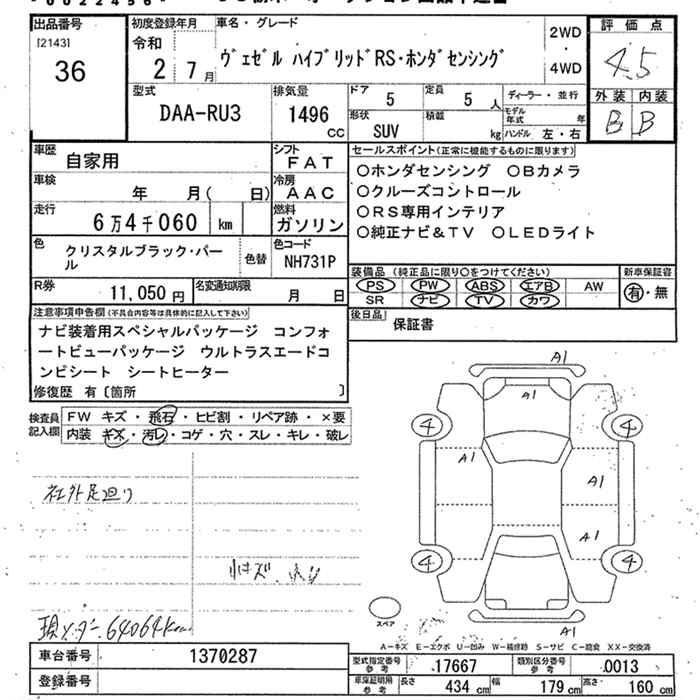 0022456
出品番号
[2143]
36
初度登録年月
令和
2 7月
車名・グレード
ヴェゼル ハイブリッドRS・ホンダセンシング
2WD
・
4WD
評価点
4.5
外装 内装
B B
型式
DAA-RU3
排気量
1496
CC
ドア
5
定員
5 人
ディーラー・並行
形状
SUV
積載
kg
モデル年式 年
ハンドル 左・右
車歴
自家用
シフト
FAT
車検
年 月( 日)
冷房
AAC
走行
6万4千060 km
燃料
ガソリン
色
クリスタルブラック・パー
ル
色替
色コード
NH731P
R券
11,050 円
名変通知期限
月 日
セールスポイント(正常に機能するものに限ります)
○ホンダセンシング ○Bカメラ
○クルーズコントロール
○RS専用インテリア
○純正ナビ&TV ○LEDライト
装備品 (純正品に限り○をつけてください)
PS PW ABS エアB AW
SR ナビ TV カワ
新車保証書
有・無
後日品
保証書
注意事項申告欄(不具合内容等は具体的に記入して下さい)
ナビ装着用スペシャルパッケージ コンフォ
ートビューパッケージ ウルトラスエードコ
ンビシート シートヒーター
修復歴 有〔箇所 〕
検査員
記入欄
FW キズ・飛石・ヒビ割・リペア跡・×要
内装 キズ・汚レ・コゲ・穴・スレ・キレ・破レ
社外足廻り
現メーター64064km
A1
A1
4 4
A1
A1
A1
4 4
スペア
A1
A−キズ E−エクボ U−凹み W−補修跡 S−サビ C−腐食 XX−交換済
車台番号
1370287
登録番号
型式指定番号
参考
17667
類別区分番号
参考
0013
車庫証明用
参考
長さ 434 cm 幅 179 cm 高さ 160 cm